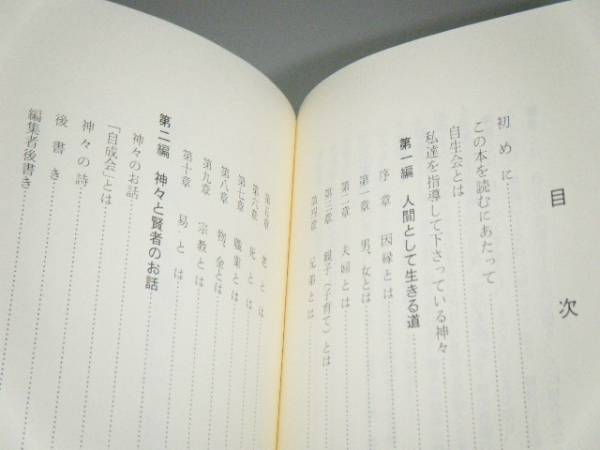 目次
初めに
この本を読むにあたって
自生会とは
私達を指導して下さっている神々
第一編 人間として生きる道
序章 因縁とは
第一章 男、女とは
第二章 夫婦とは
第三章 親子(子育て)とは
第四章 兄弟とは
第五章 老とは
第六章 死とは
第七章 職業とは
第八章 物、金とは
第九章 宗教とは
第十章 易とは
第二編 神々と賢者のお話
神々のお話
「自成会」とは
神々の詩
後書き
編集者後書き